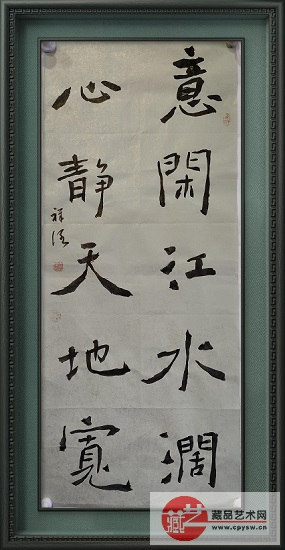 意閑江水濶
心静天地寬
祥
藏艺
藏品艺术网
www.cpysw.cn